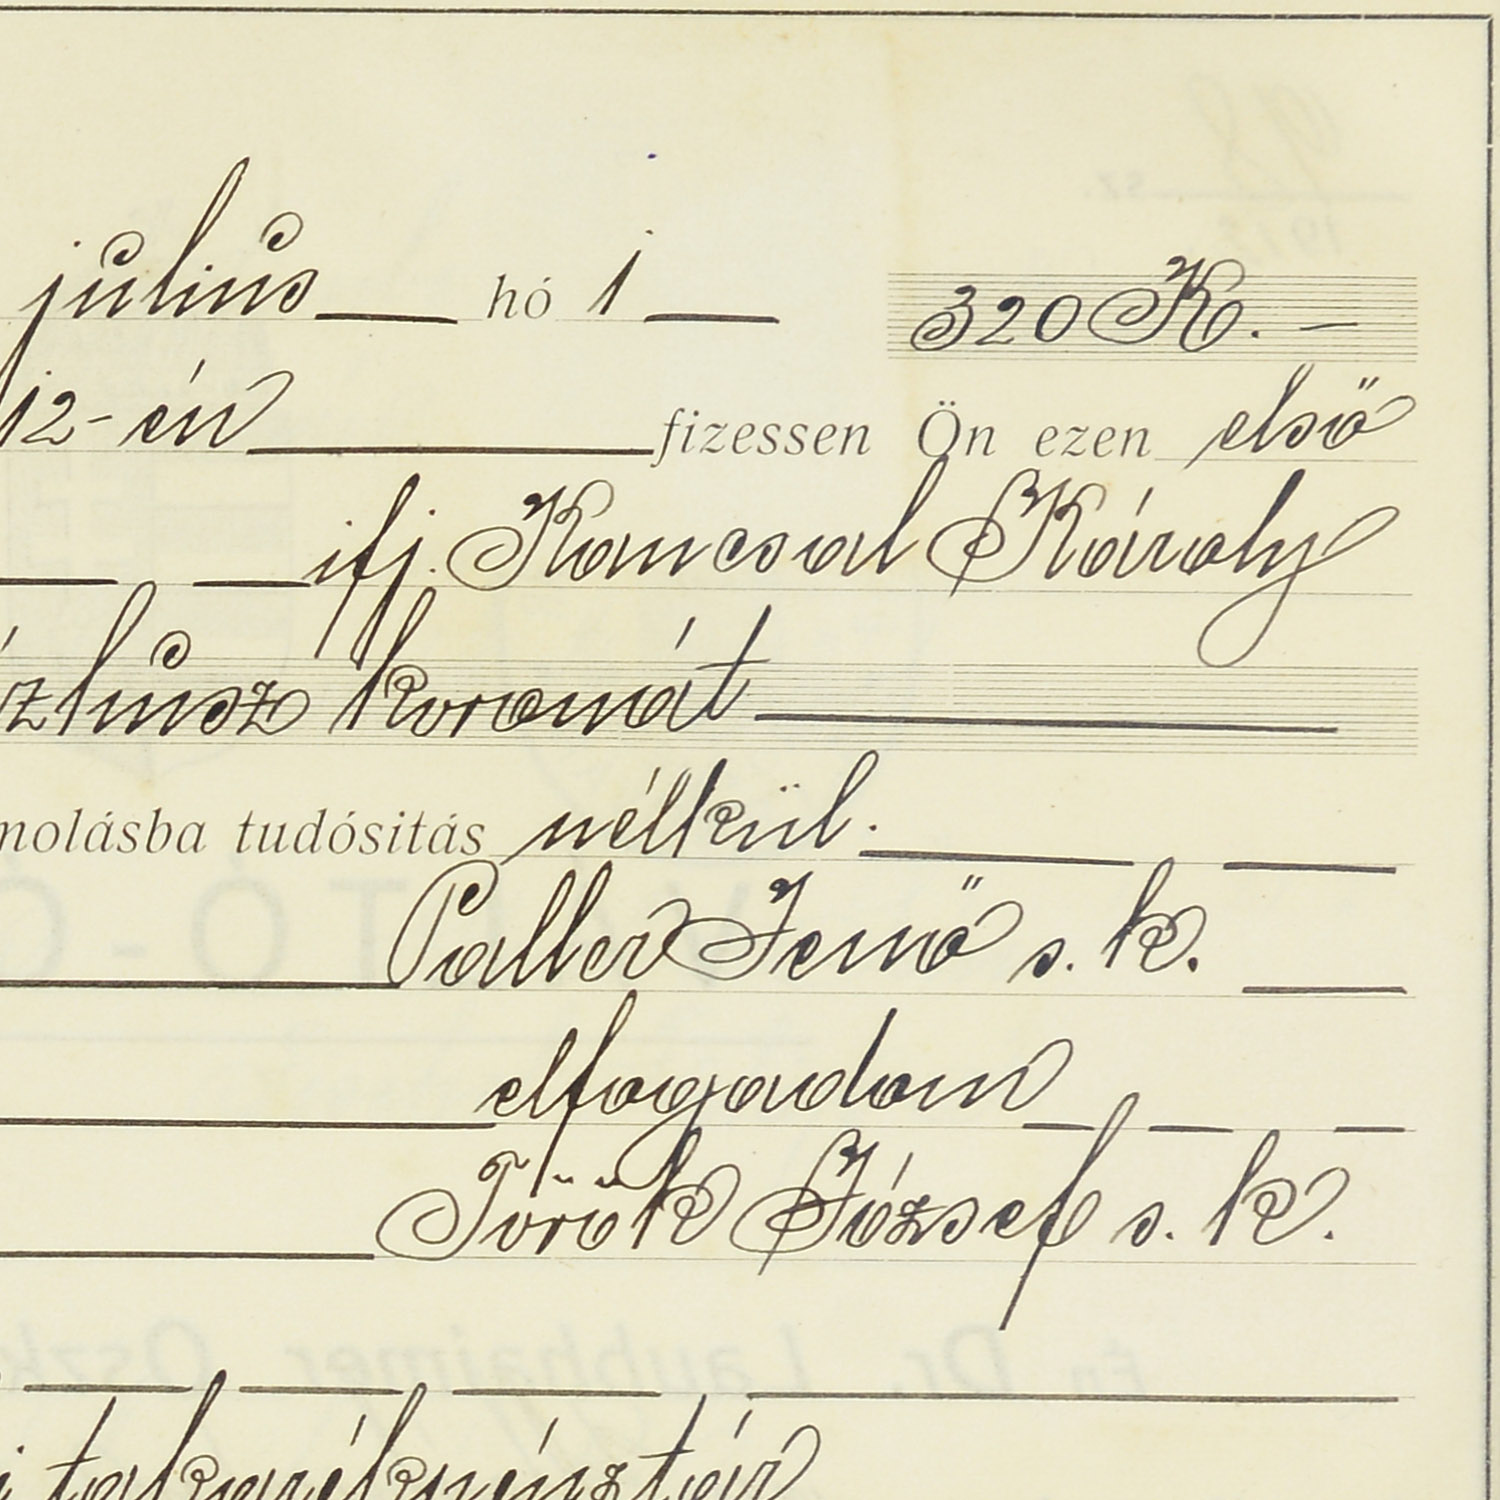 július hó 1 320 K. —
12-én fizessen Ön ezen első
ifj. Kancsal Károly
zhúsz koronát
molásba tudósitás nélkül.
Paller Jenő s. k.
elfogadom
Török József s. k.
takarékpénztár